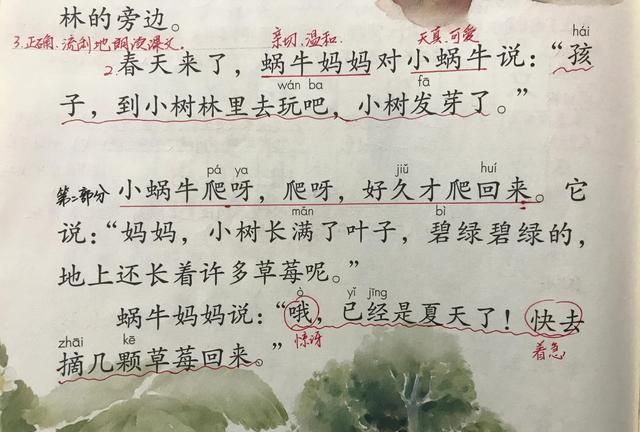 林的旁边。
3.正确、流利地朗读课文。 亲切、温和. 天真、可爱 hái
2 春天来了，蜗牛妈妈对小蜗牛说：“孩
wán ba fā
子，到小树林里去玩吧，小树发芽了。”
pá ya jiǔ huí
第二部分 小蜗牛爬呀，爬呀，好久才爬回来。它
mǎn bì
说：“妈妈，小树长满了叶子，碧绿碧绿的，
地上还长着许多草莓呢。”
ò yǐ jīng
蜗牛妈妈说：“哦，已经是夏天了！快去
zhāi kē 惊讶 着急
摘几颗草莓回来。”